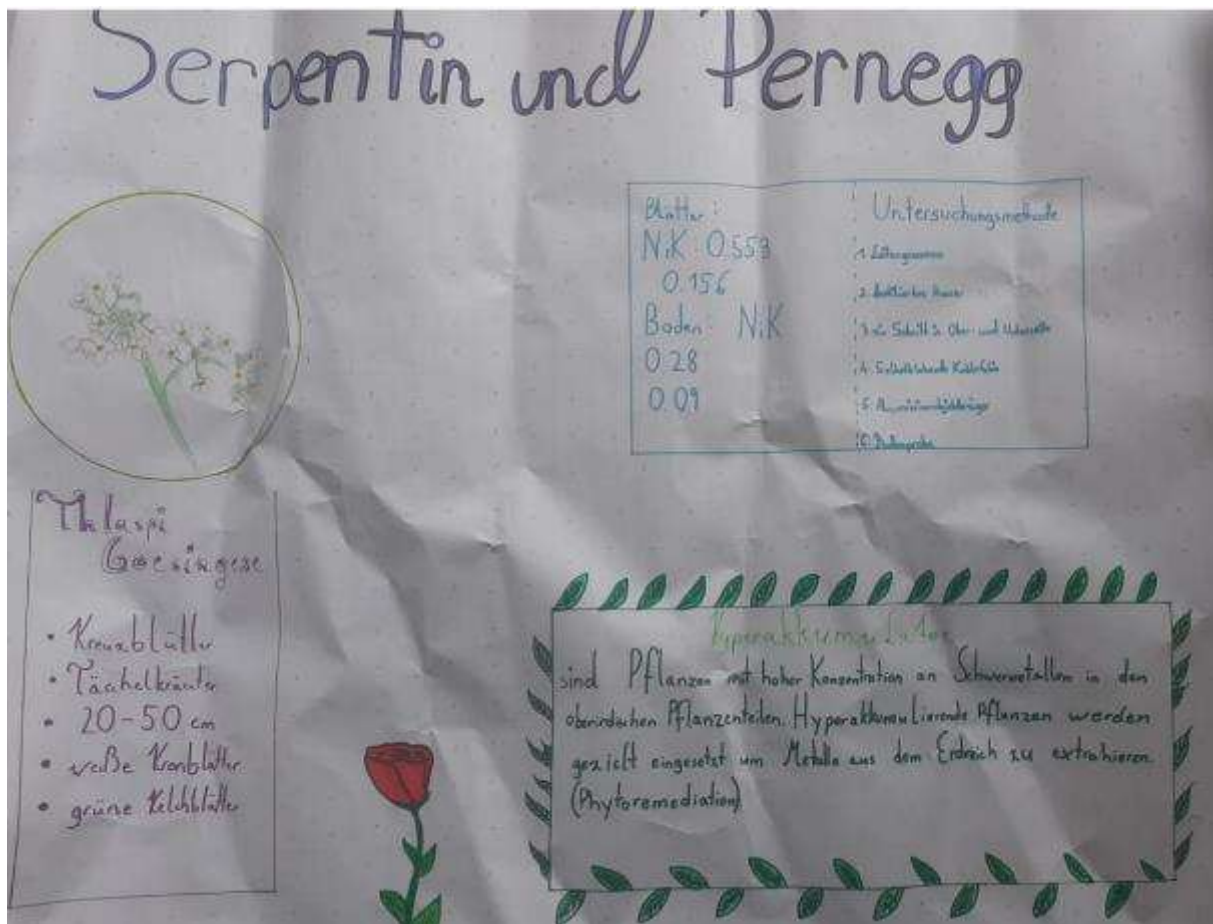 Serpentin und Pernegg
Blätter:
NiK 0.553
0.156
Boden: NiK
0.28
0.09
Untersuchungsmethode
1.
2.
3. Ober- und
4.
5.
6. Bodenprobe
Thlaspi
Goesingese
• Kreuzblütler
• Täschelkräuter
• 20-50 cm
• weiße Kronblätter
• grüne Kelchblätter
Hyperakkumulator
sind Pflanzen mit hoher Konzentration an Schwermetallen in den
oberirdischen Pflanzenteilen. Hyperakkumulierende Pflanzen werden
gezielt eingesetzt um Metalle aus dem Erdreich zu extrahieren
(Phytoremediation).